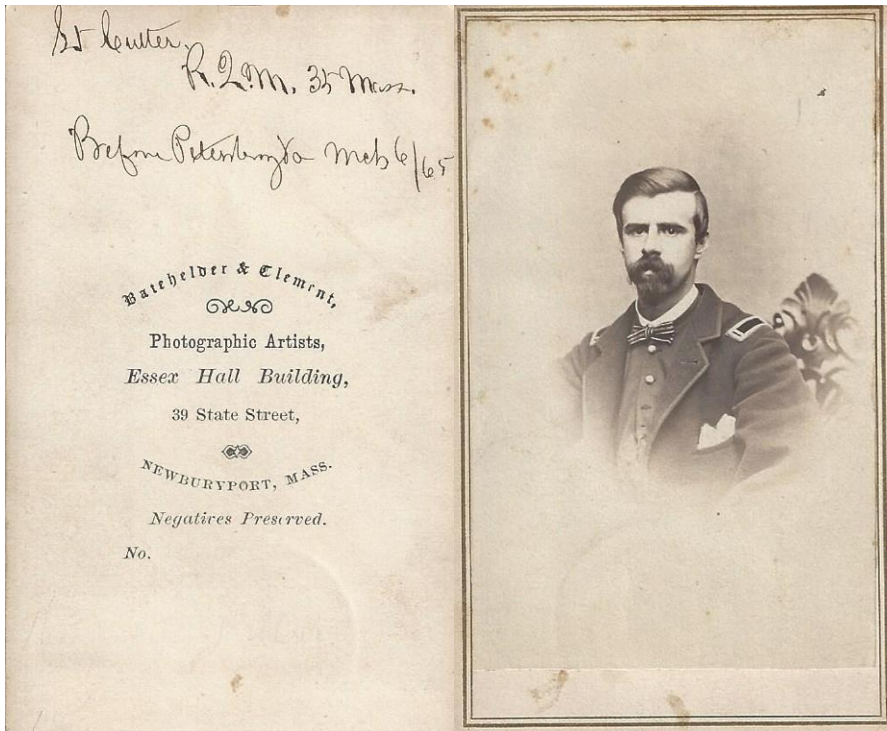 Cutter,
R.Q.M. 35 Mass.
Before Petersburg Va Mch 6/65
Batchelder & Clement,
Photographic Artists,
Essex Hall Building,
39 State Street,
NEWBURYPORT, MASS.
Negatives Preserved.
No.